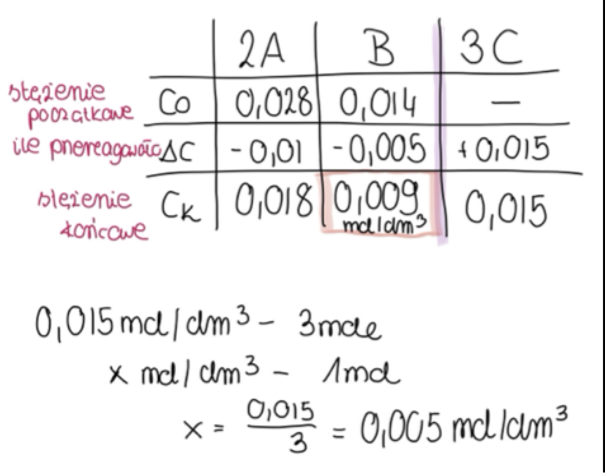 2A B 3C
stężenie początkowe Co 0,028 0,014 —
ile przereagowało ΔC -0,01 -0,005 +0,015
stężenie końcowe CK 0,018 0,009 mol/dm³ 0,015
0,015 mol/dm³ - 3mole
x mol/dm³ - 1mol
x = 0,015/3 = 0,005 mol/dm³